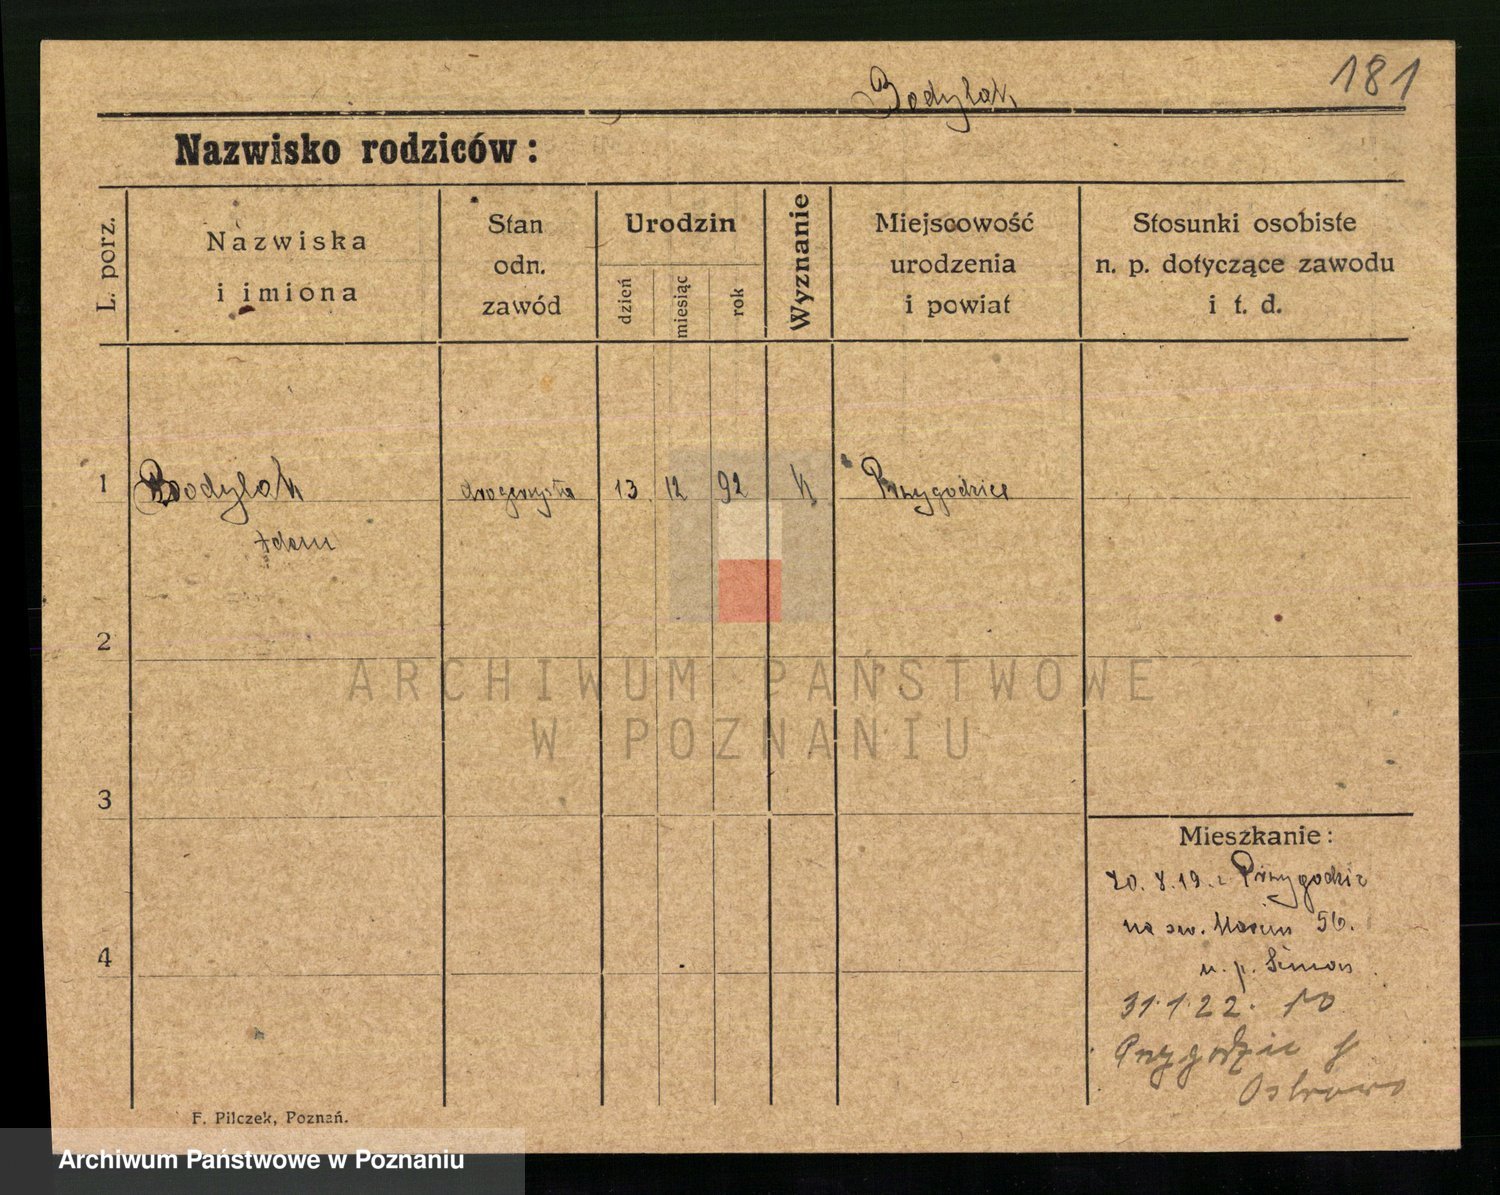 Bodylak
181
Nazwisko rodziców:
L. porz.
Nazwiska
i imiona
Stan
odn.
zawód
Urodzin
dzień
miesiąc
rok
Wyznanie
Miejscowość
urodzenia
i powiat
Stosunki osobiste
n. p. dotyczące zawodu
i t. d.
1
Bodylak
Adam
drogerzysta
13.
12
92
k
Przygodzice
2
ARCHIWUM PAŃSTWOWE
W POZNANIU
3
Mieszkanie:
20. 8. 19. z Przygodzic
na św. Marcin 56.
u. p. Simon
4
31.1.22. do
Przygodzic
Ostrowo
F. Pilczek, Poznań.
Archiwum Państwowe w Poznaniu